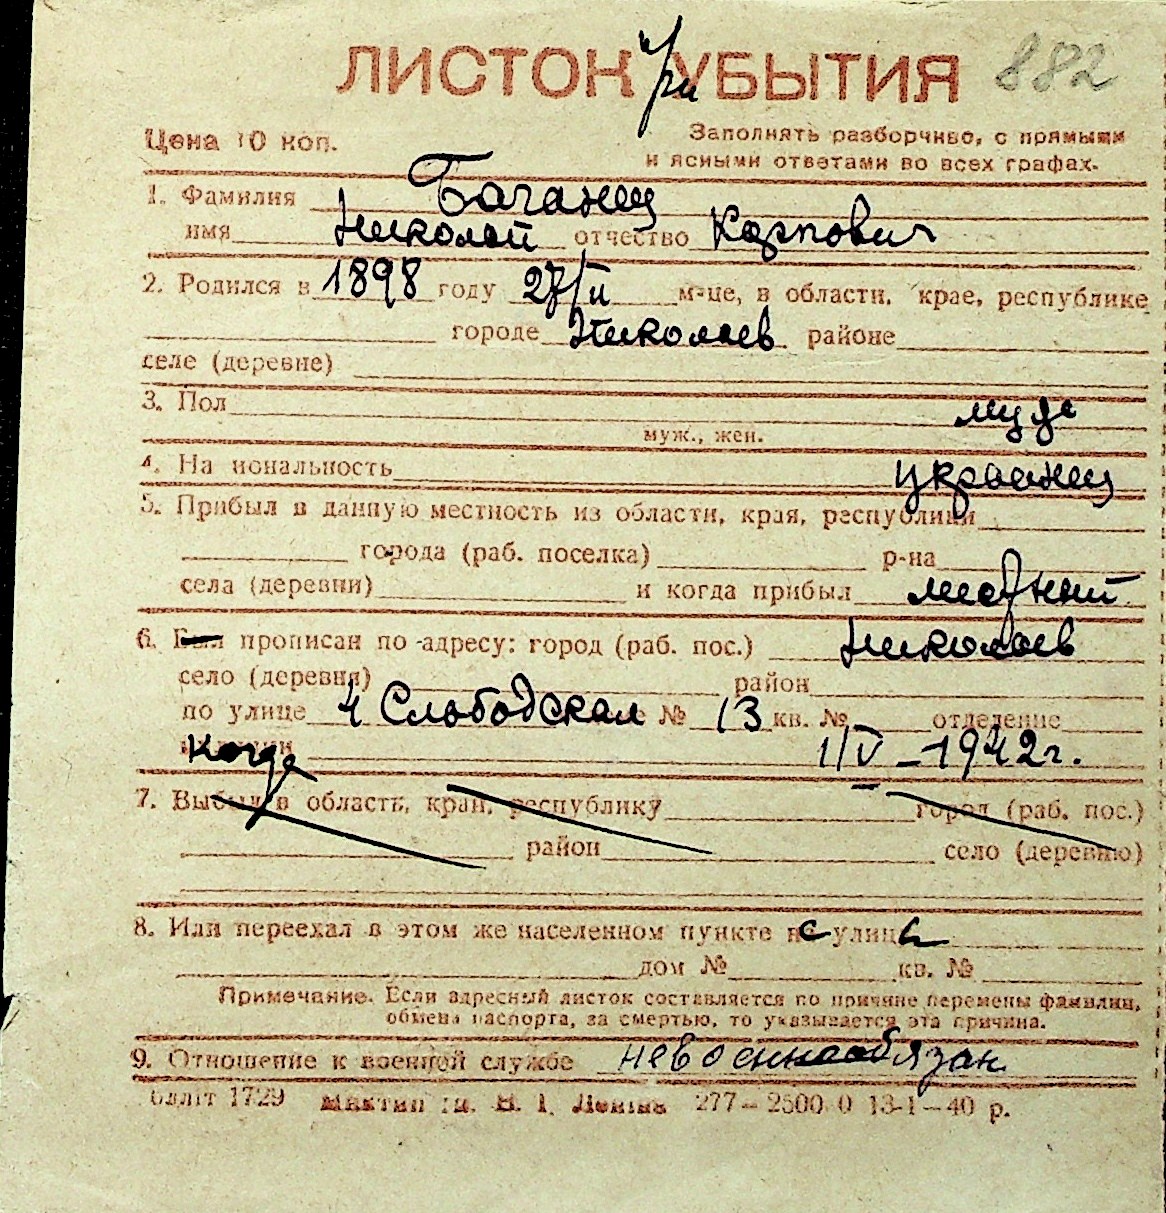 ЛИСТОК при УБЫТИЯ 882
Цена 10 коп.
Заполнять разборчиво, с прямыми
и ясными ответами во всех графах.
1. Фамилия Баганец
имя Николай отчество Карпович
2. Родился в 1898 году 27/II м-це, в области, крае, республике
городе Николаев районе
селе (деревне)
3. Пол муж
муж., жен.
4. На иональность украинец
5. Прибыл в данную местность из области, края, республики
города (раб. поселка) р-на
села (деревни) и когда прибыл местный
6. Был прописан по адресу: город (раб. пос.) Николаев
село (деревня) район
по улице 4 Слободская № 13 кв. № отделение
когда 1/V - 1942 г.
7. Выбыл в область, край, республику город (раб. пос.)
район село (деревню)
8. Или переехал в этом же населенном пункте с улицы
дом № кв. №
Примечание. Если адресный листок составляется по причине перемены фамилии,
обмена паспорта, за смертью, то указывается эта причина.
9. Отношение к военной службе невоеннообязан
1729 В. І. Леніна 277—2500 0 13-1—40 р.